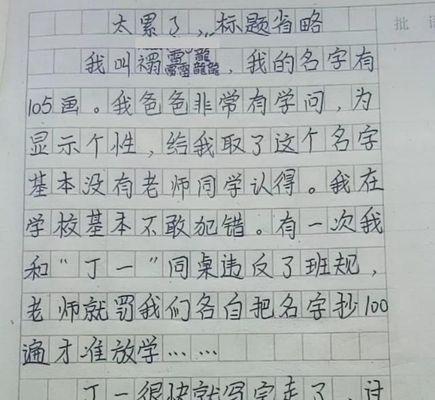 太累了,,标题省略
批
我叫禤靐龘,我的名字有
105画。我爸爸非常有学问,为
显示个性,给我取了这个名字
基本没有老师同学认得。我在
学校基本不敢犯错。有一次我
和“丁一”同桌违反了班规,
老师就罚我们各自把名字抄100
遍才准放学……
丁一很快就写完走了,讨